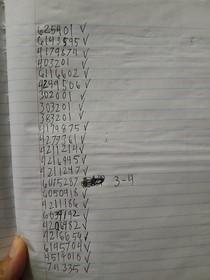 625401 ✓
6143595 ✓
4179874 ✓
403201 ✓
6116602 ✓
4244506 ✓
302001 ✓
303201 ✓
383201 ✓
4179875 ✓
4279761 ✓
4211214 ✓
4216945 ✓
4211247 ✓
6015287 3-4
6050418 ✓
4211186 ✓
6039192 ✓
4206982 ✓
4216656 ✓
6145704 ✓
4514018 ✓
741335 ✓